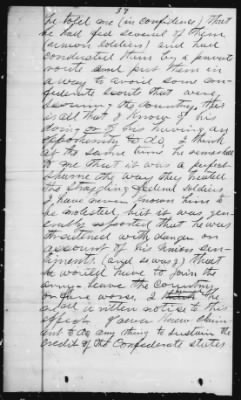 37
he told me (in confidence) that
he had fed several of them
(union soldiers) and had
conducted them by a private
route and put them in
a way to avoid some con-
federate scouts that were
scouring the country, this
is all that I know of his
doing or of his having an
opportunity to do, I think
at the same time he remarked
to me that it was a perfect
shame the way they treated
the straggling federal soldiers
I have never known him to
be molested but it was gen-
erally reported that he was
threatened with danger on
account of his union sen-
timents. (and so was I) that
he would have to join the
army - leave the country
or fare worse, I think he
also had written notices to this
effect. I never knew claim-
ant to do any thing to sustain the
credit of the Confederate states